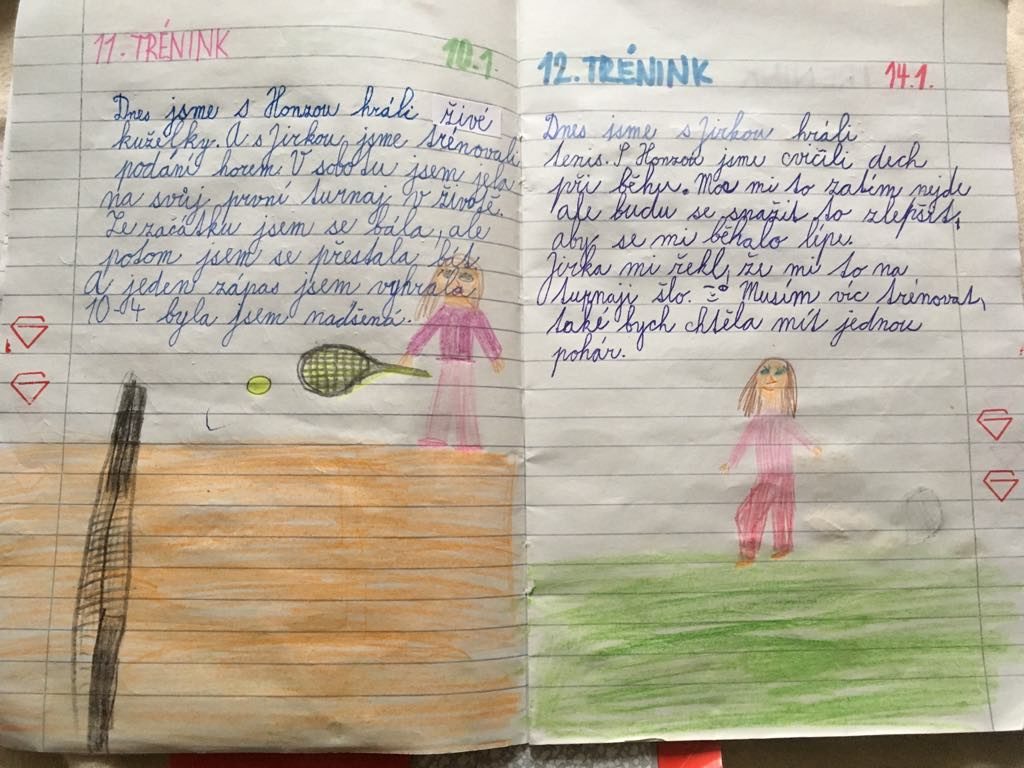 11. TRÉNINK
10.1.
Dnes jsme s Honzou hráli živé
kuželky. A s Jirkou jsme trénovali
podání horem. V sobotu jsem jela
na svůj první turnaj v životě.
Ze začátku jsem se bála, ale
potom jsem se přestala bát.
A jeden zápas jsem vyhrála
10-04 byla jsem nadšená.
12. TRÉNINK
14.1.
Dnes jsme s Jirkou hráli
tenis. S Honzou jsme cvičili dech
při běhu. Moc mi to zatím nejde
ale budu se snažit to zlepšit,
aby se mi běhalo lépe.
Jirka mi řekl, že mi to na
turnaji šlo. Musím víc trénovat,
také bych chtěla mít jednou
pohár.